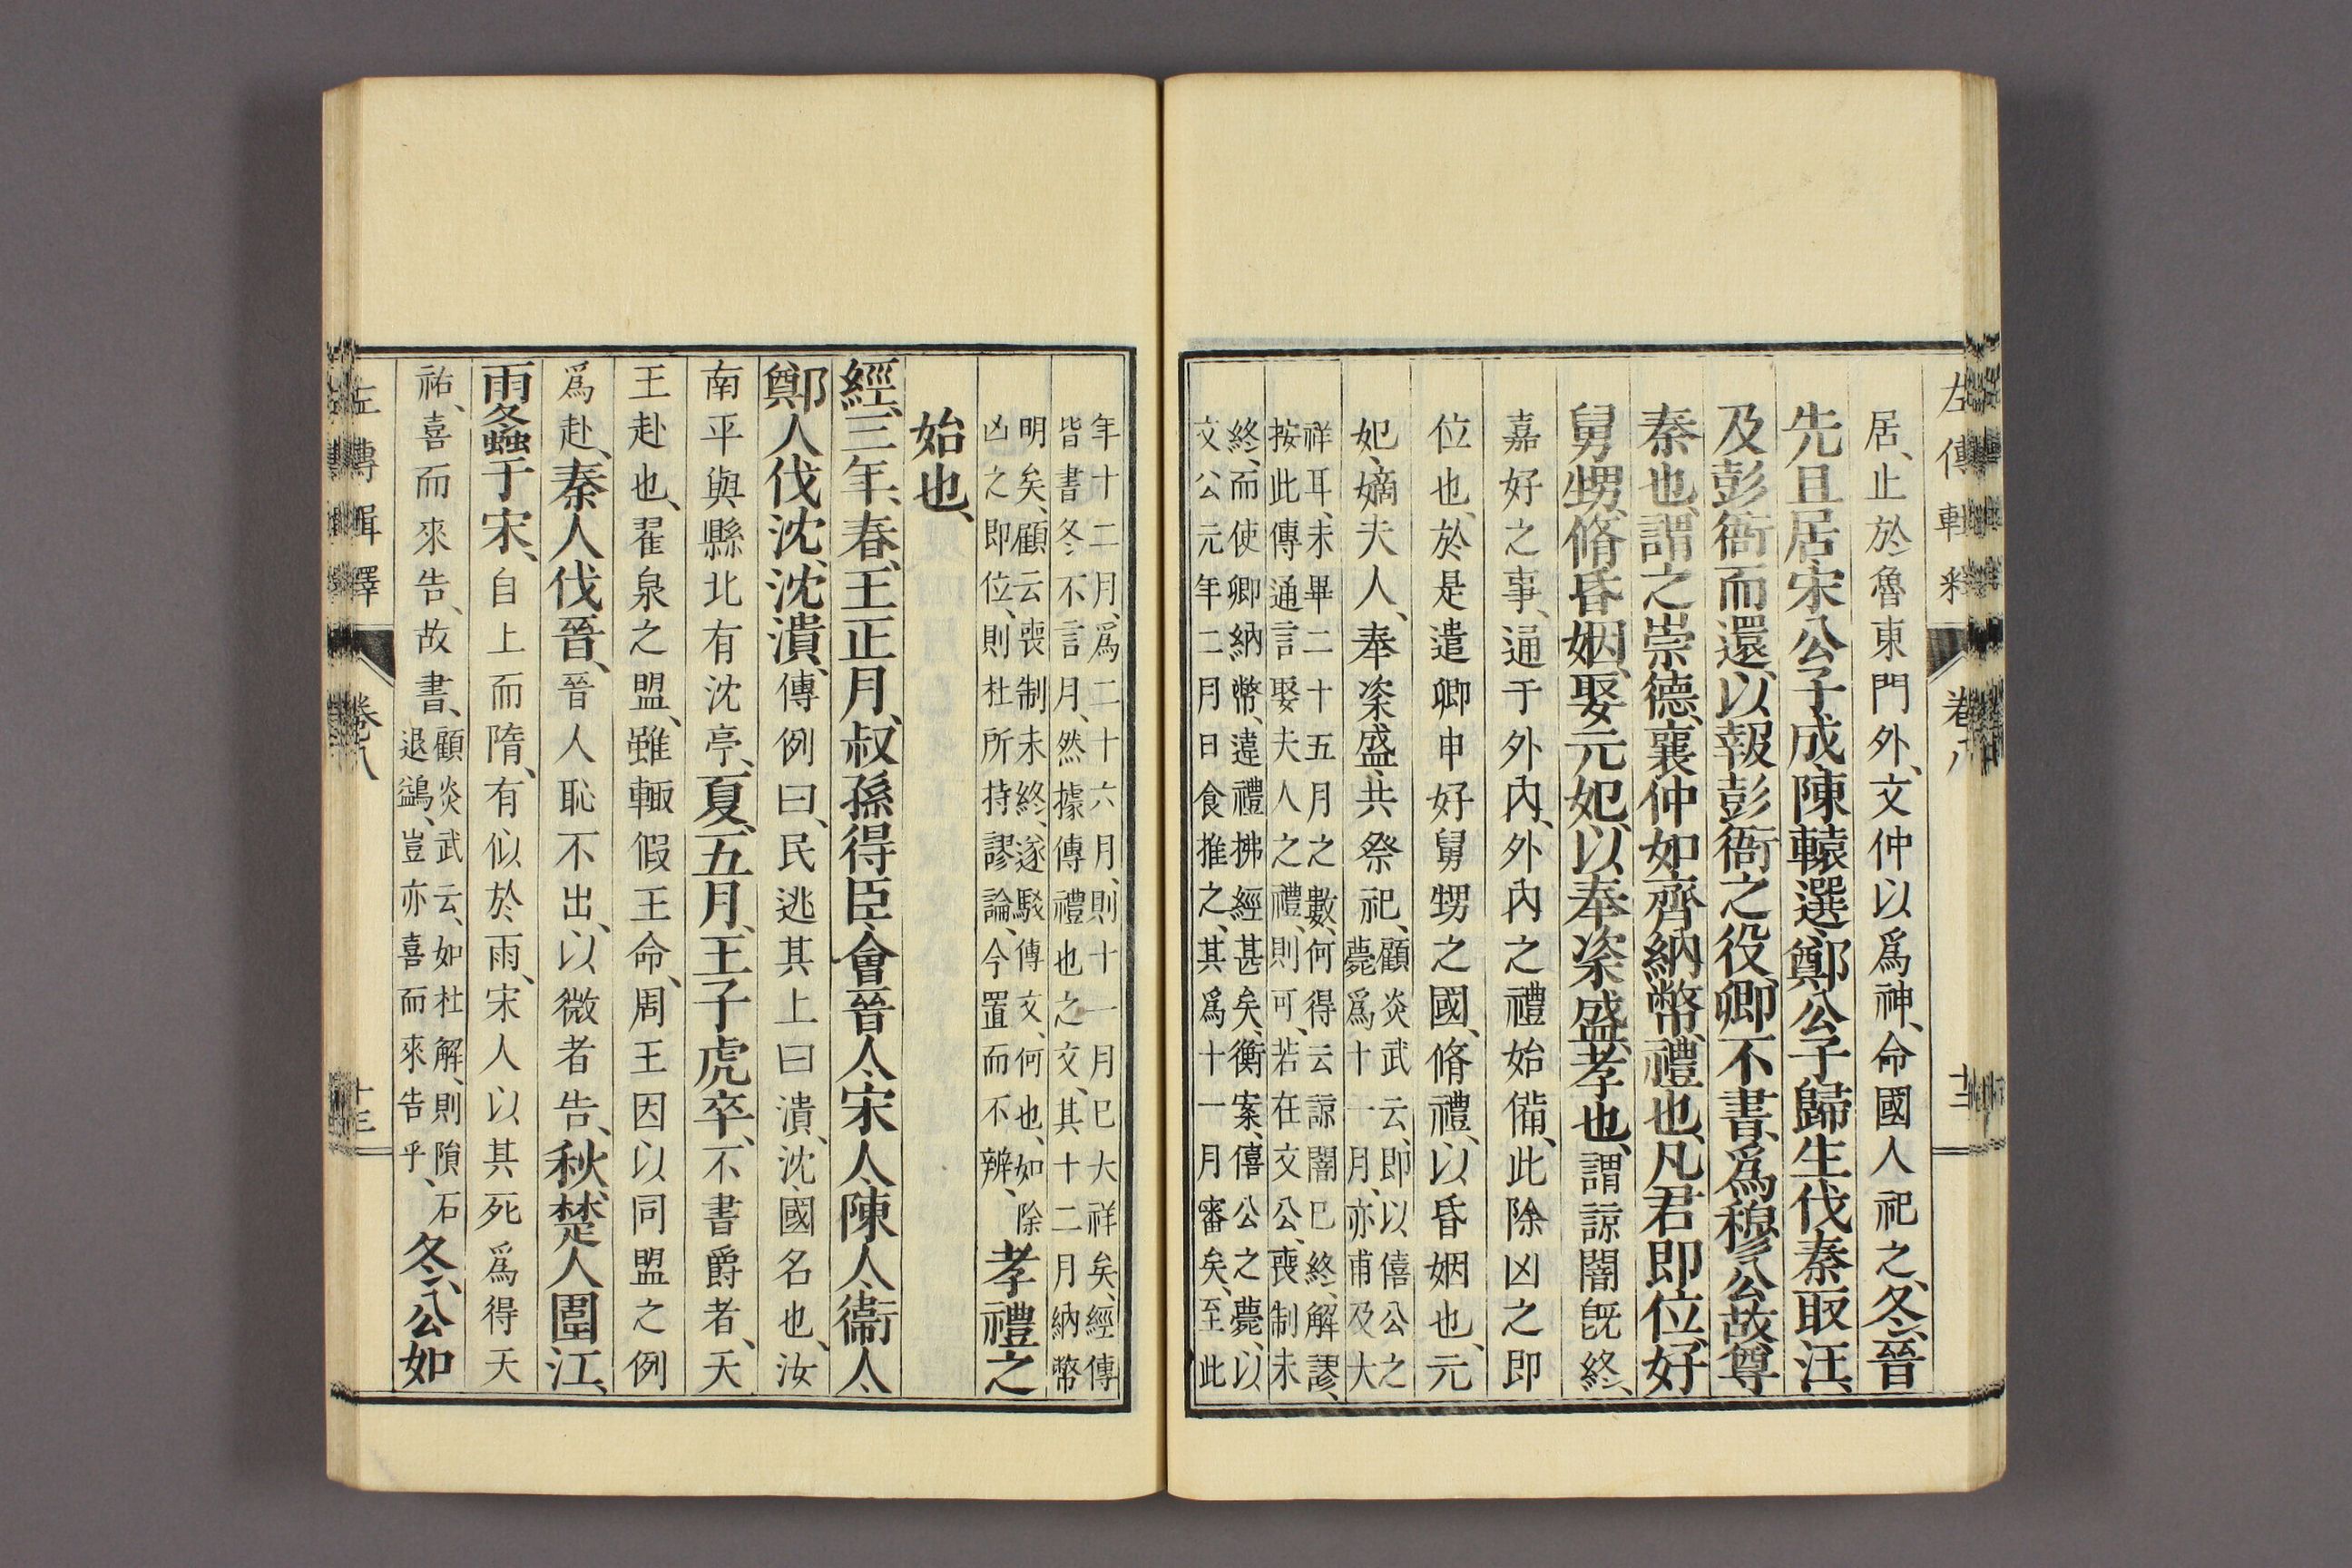 左傳輯釋 卷八 十二
居、止於魯東門外、文仲以爲神、命國人祀之、冬、晉
先且居、宋公子成、陳轅選、鄭公子歸生伐秦、取汪、
及彭衙而還、以報彭衙之役、卿不書、爲穆公故、尊
秦也、謂之崇德、襄仲如齊納幣、禮也、凡君即位、好
舅甥、脩昏姻、娶元妃、以奉粢盛、孝也、謂諒闇既終、
嘉好之事、通于外內、外內之禮始備、此除凶之即
位也、於是遣卿申好舅甥之國、脩禮、以昏姻也、元
妃、嫡夫人、奉粢盛、共祭祀、顧炎武云、即以僖公之
薨爲十一月、亦甫及大
祥耳、未畢二十五月之數、何得云諒闇已終、解謬、
按此傳通言娶夫人之禮、則可、若在文公、喪制未
終、而使卿納幣、違禮拂經甚矣、衡案、僖公之薨、以
文公元年二月日食推之、其爲十一月審矣、至此
年十二月、爲二十六月、則十一月已大祥矣、經傳
皆書冬不言月、然據傳禮也之文、其十二月納幣
明矣、顧云喪制未終、遂駁傳文、何也、如除
凶之即位、則杜所持謬論、今置而不辨、孝禮之
始也、
經、三年、春、王正月、叔孫得臣、會晉人、宋人、陳人、衞人、
鄭人伐沈、沈潰、傳例曰、民逃其上曰潰、沈、國名也、汝
南平輿縣北有沈亭、夏、五月、王子虎卒、不書爵者、天
王赴也、翟泉之盟、雖輒假王命、周王因以同盟之例
爲赴、秦人伐晉、晉人恥不出、以微者告、秋、楚人圍江、
雨螽于宋、自上而隋、有似於雨、宋人以其死爲得天
祐、喜而來告、故書、顧炎武云、如杜解、則隕石
退鷁、豈亦喜而來告乎、冬、公如
左傳輯釋 卷八 十三